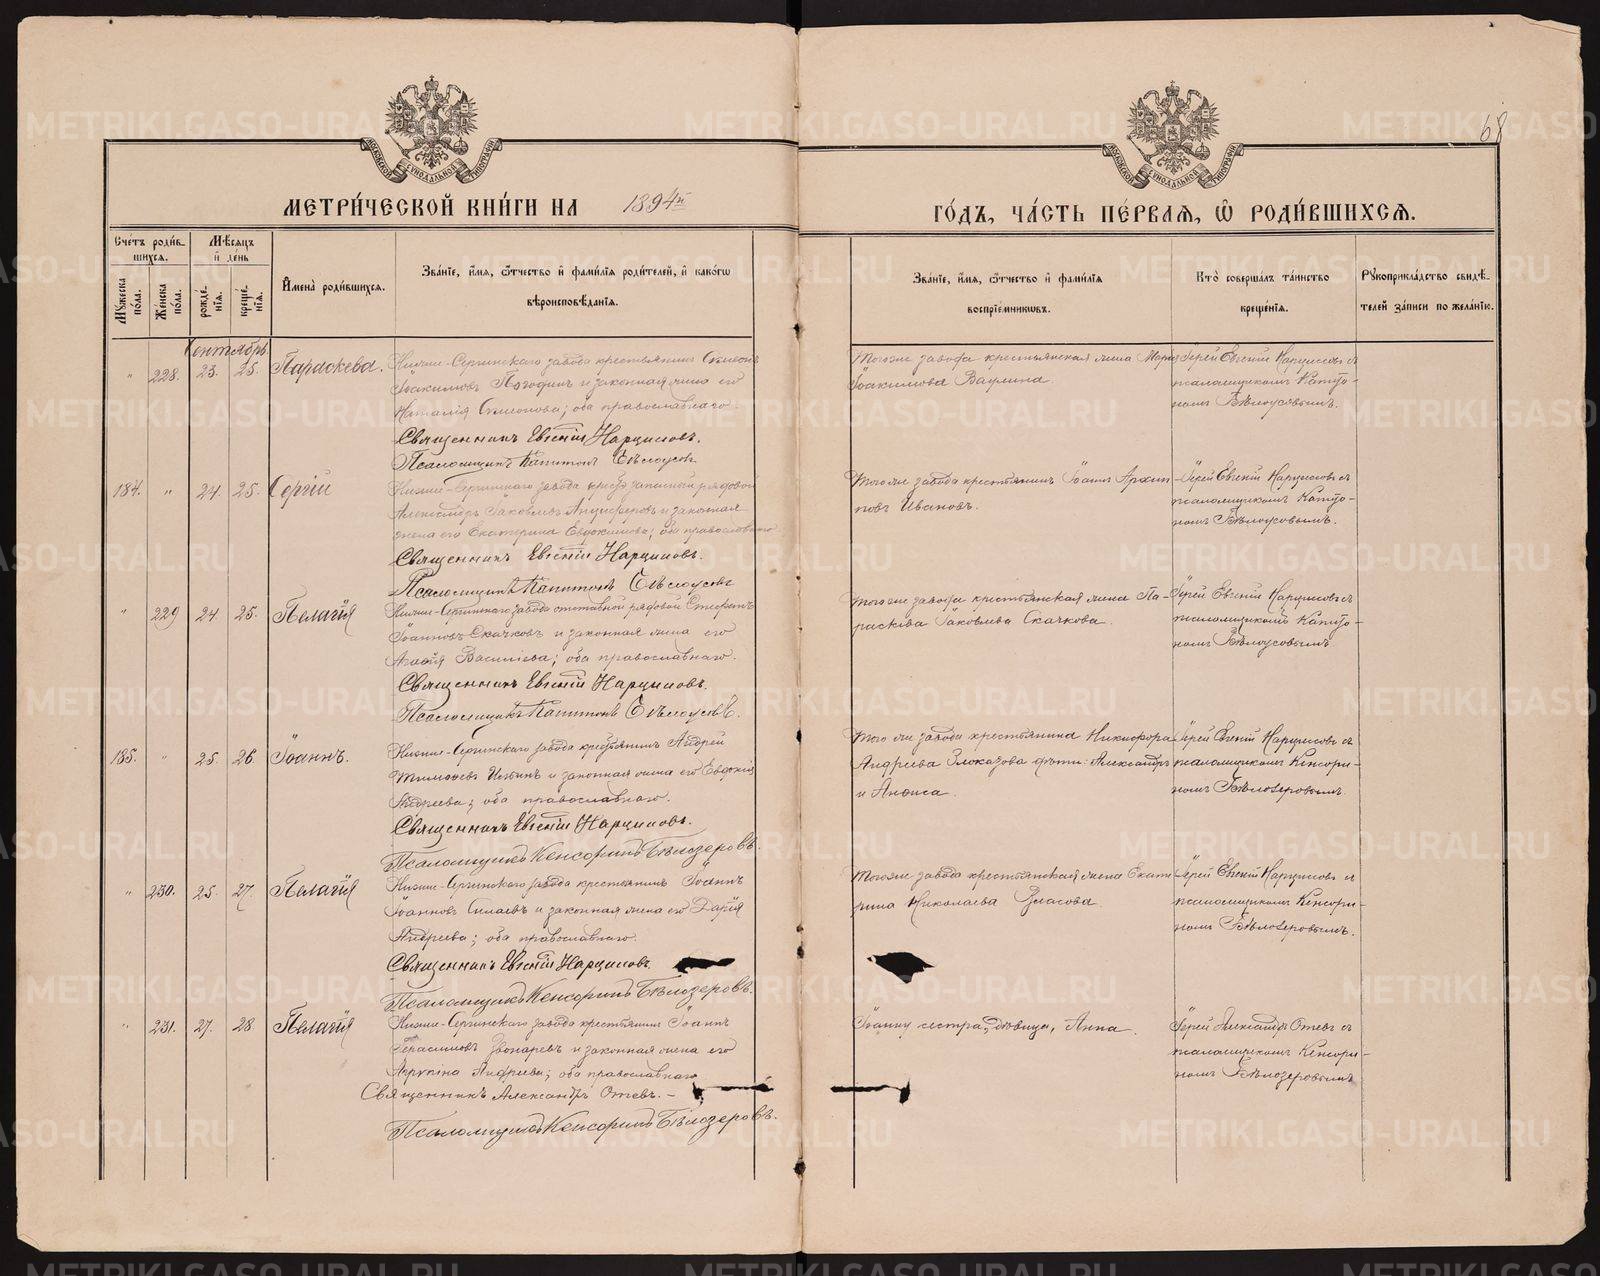 68
МЕТРИЧЕСКОЙ КНИГИ НА 1894й ГОДЪ, ЧАСТЬ ПЕРВАЯ, Ѿ РОДИВШИХСЯ.
Счетъ родившихся.
Мужеска пола.
Женска пола.
Мѣсяцъ и день
рождения.
крещения.
Имена родившихся.
Званіе, имя, ѿчество и фамилія родителей, и какогѡ вѣроисповѣданія.
Званіе, имя, ѿчество и фамилія воспріемникѡвъ.
Кто совершалъ таинство крещенія.
Рукоприкладство свидѣтелей записи по желанію.
Сентябрь.
„ 228. 23. 25. Параскева.
Нижне-Сергинскаго завода крестьянинъ Симеонъ
Іоакимовъ Погодинъ и законная жена его
Наталія Симеонова; оба православнаго.
Священникъ Евгеній Нарциссовъ.
Псаломщикъ Капитонъ Бѣлоусовъ
Тогоже завода крестьянская жена Марія
Іоакимова Ваулина.
Іерей Евгеній Нарциссовъ съ
псаломщикомъ Капито-
номъ Бѣлоусовымъ.
184. „ 24. 25. Сергій
Нижне-Сергинскаго завода запасный рядовой
Александръ Іаковлевъ Анциферовъ и законная
жена его Екатерина Евдокимова; оба православнаго
Священникъ Евгеній Нарциссовъ.
Псаломщикъ Капитонъ Бѣлоусовъ
Тогоже завода крестьянинъ Іоаннъ Архип-
повъ Ивановъ.
Іерей Евгеній Нарциссовъ съ
псаломщикомъ Капито-
номъ Бѣлоусовымъ.
„ 229 24. 25. Пелагія
Нижне-Сергинскаго завода отставной рядовой Стефанъ
Іоанновъ Скачковъ и законная жена его
Агафія Василіева; оба православнаго.
Священникъ Евгеній Нарциссовъ.
Псаломщикъ Капитонъ Бѣлоусовъ.
Тогоже завода крестьянская жена Па-
раскева Іаковлева Скачкова.
Іерей Евгеній Нарциссовъ съ
псаломщикомъ Капито-
номъ Бѣлоусовымъ
185. „ 25. 26. Іоаннъ.
Нижне-Сергинскаго завода крестьянинъ Андрей
Тимофеевъ и законная жена его Евдокія
Андреева; оба православнаго.
Священникъ Евгеній Нарциссовъ.
Псаломщикъ Кенсоринъ Бѣлозеровъ.
Того же завода крестьянина Никифора
Андреева Глоказова дѣти: Александръ
и Анфиса.
Іерей Евгеній Нарциссовъ съ
псаломщикомъ Кенсори-
номъ Бѣлозеровымъ.
„ 230. 25. 27. Пелагія
Нижне-Сергинскаго завода крестьянинъ Іоаннъ
Іоанновъ Силаевъ и законная жена его Дарія
Андреева; оба православнаго.
Священникъ Евгеній Нарциссовъ.
Псаломщикъ Кенсоринъ Бѣлозеровъ.
Тогоже завода крестьянская жена Екате
рина Николаева Власова.
Іерей Евгеній Нарциссовъ съ
псаломщикомъ Кенсори-
номъ Бѣлозеровымъ.
„ 231. 27. 28. Пелагія
Нижне-Сергинскаго завода крестьянинъ Іоаннъ
Герасимовъ Звонаревъ и законная жена его
Агрипина Андреева; оба православнаго
Священникъ Александръ Отевъ.
Псаломщикъ Кенсоринъ Бѣлозеровъ.
Іоанну сестра, дѣвица, Анна.
Іерей Александръ Отевъ съ
псаломщикомъ Кенсори-
номъ Бѣлозеровымъ
METRIKI.GASO-URAL.RU